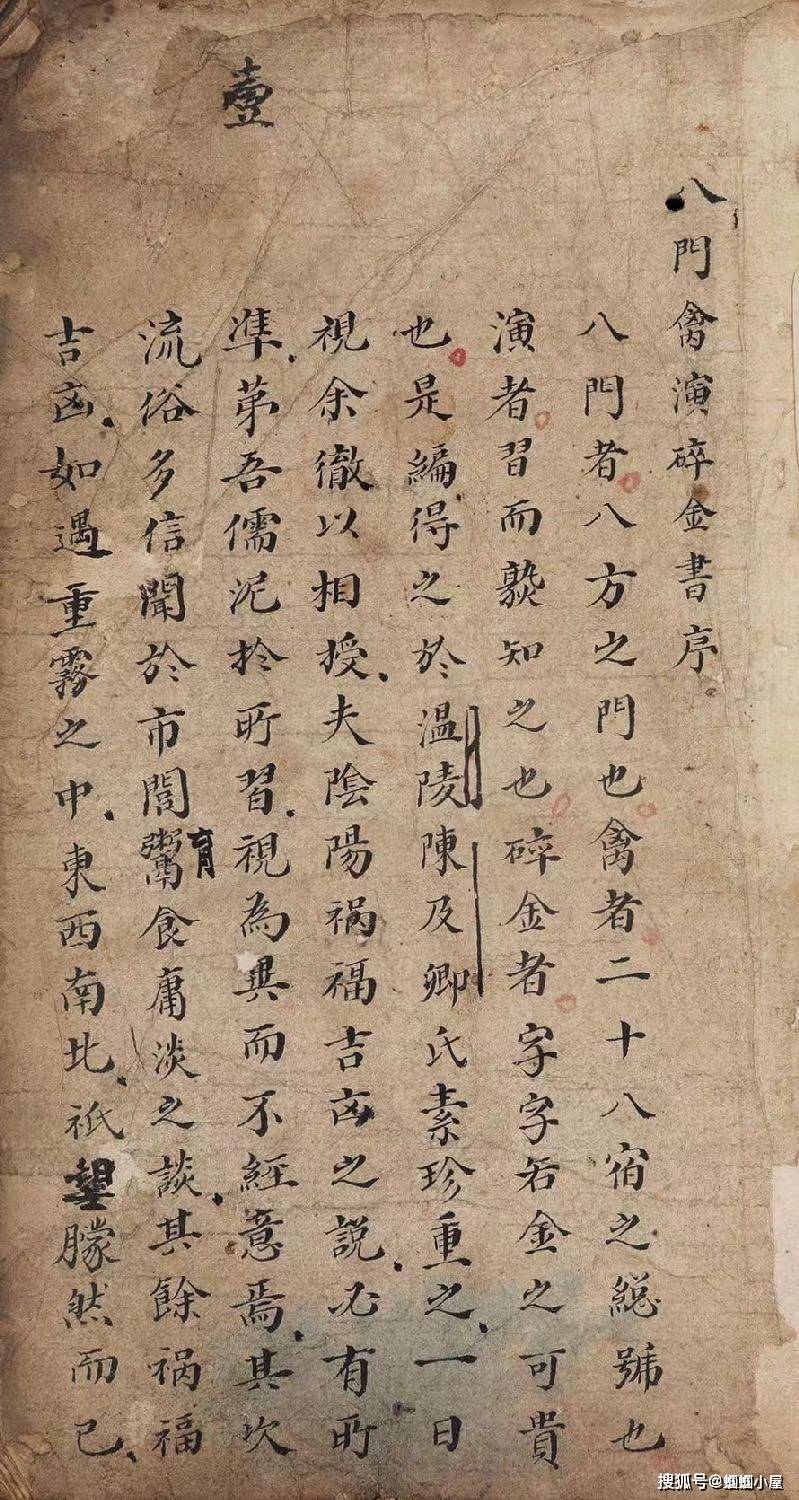 八門禽演碎金書序
八門者八方之門也禽者二十八宿之総號也
演者習而熟知之也碎金者字字若金之可貴
也是編得之於温陵陳及卿氏素珍重之、一日
視余徹以相授、夫陰陽祸福吉凶之説、必有所
準、苐吾儒泥於所習、視為異而不經意焉、其坎
流俗多信聞於市閭鬻食庸淡之談、其餘祸福
育
吉凶、如遇重霧之中、東西南北、祇朦然而已、
壹
搜狐号@蝈蝈小屋